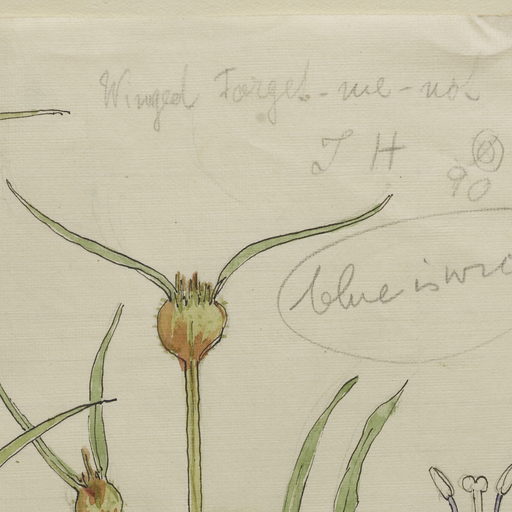 Winged Forget-me-not
J H
90
blue is wro